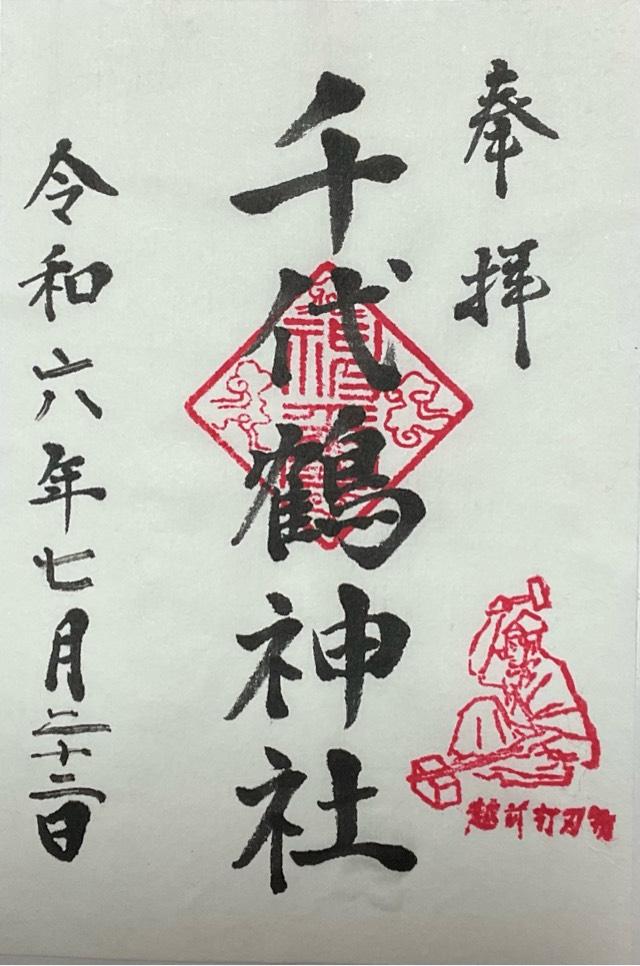 奉拝
越前打刃物
千代鶴神社
令和六年七月二十二日